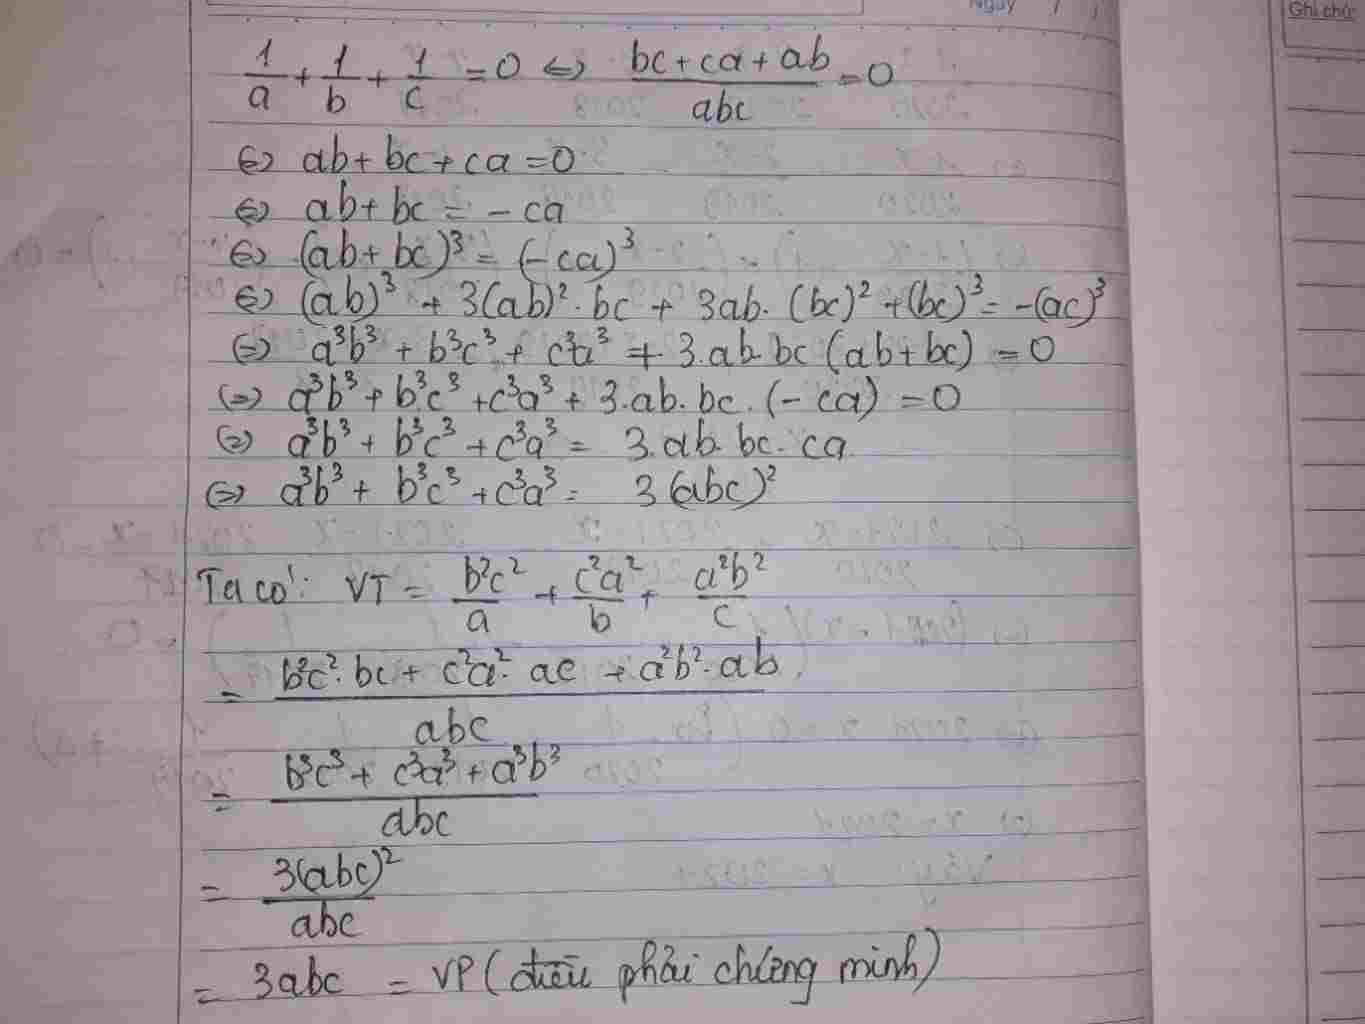 Ngày / /
Ghi chú:
1/a + 1/b + 1/c = 0 ⇔ (bc + ca + ab)/abc = 0
⇔ ab + bc + ca = 0
⇔ ab + bc = - ca
⇔ (ab + bc)³ = (-ca)³
⇔ (ab)³ + 3(ab)² · bc + 3ab · (bc)² + (bc)³ = -(ac)³
⇔ a³b³ + b³c³ + c³a³ + 3.ab.bc (ab + bc) = 0
⇔ a³b³ + b³c³ + c³a³ + 3.ab.bc.(- ca) = 0
⇔ a³b³ + b³c³ + c³a³ = 3.ab.bc.ca
⇔ a³b³ + b³c³ + c³a³ = 3(abc)²
Ta có: VT = b²c²/a + c²a²/b + a²b²/c
= (b²c² · bc + c²a² · ac + a²b² · ab)/abc
= (b³c³ + c³a³ + a³b³)/abc
= 3(abc)²/abc
= 3abc = VP (điều phải chứng minh)